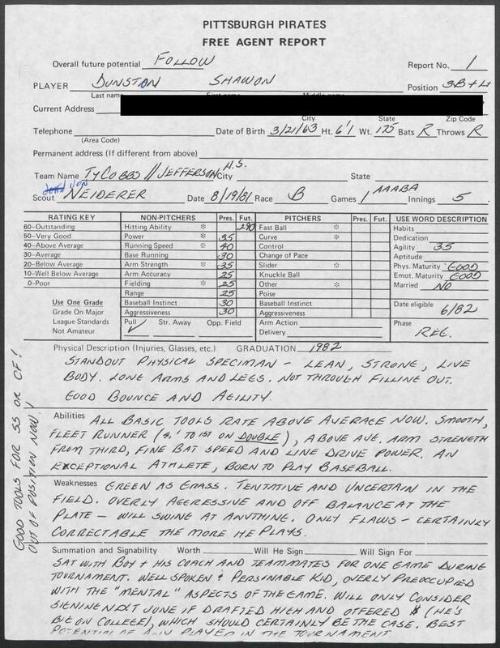 PITTSBURGH PIRATES
FREE AGENT REPORT
Overall future potential FOLLOW Report No. 1
PLAYER DUNSTON SHAWON Position 3B+4
Last name First name Middle name
Current Address
City State Zip Code
Telephone Date of Birth 3/21/63 Ht. 6'1 Wt. 175 Bats R Throws R
(Area Code)
Permanent address (If different from above)
Team Name TY COBBS // JEFFERSON H.S. City State
Scout JON NEIDERER Date 8/19/81 Race B Games 1 AAABA Innings 5
RATING KEY NON-PITCHERS Pres. Fut. PITCHERS Pres. Fut. USE WORD DESCRIPTION
60-Outstanding Hitting Ability * Fast Ball * Habits
50-Very Good Power * 35 Curve * Dedication
40-Above Average Running Speed * 40 Control Agility 35
30-Average Base Running 30 Change of Pace Aptitude
20-Below Average Arm Strength * 35 Slider * Phys. Maturity GOOD
10-Well Below Average Arm Accuracy 25 Knuckle Ball Emot. Maturity GOOD
0-Poor Fielding * 25 Other * Married NO
Range 25 Poise
Use One Grade Baseball Instinct 30 Baseball Instinct Date eligible
Grade On Major Aggressiveness 30 Aggressiveness 6/82
League Standards Pull ✓ Str. Away Opp. Field Arm Action Phase
Not Amateur Delivery REG.
Physical Description (Injuries, Glasses, etc.) GRADUATION 1982
STANDOUT PHYSICAL SPECIMAN - LEAN, STRONG, LIVE
BODY. LONG ARMS AND LEGS. NOT THROUGH FILLING OUT.
GOOD BOUNCE AND AGILITY.
Abilities ALL BASIC TOOLS RATE ABOVE AVERAGE NOW. SMOOTH,
FLEET RUNNER ( TO 1ST ON DOUBLE), ABOVE AVE. ARM STRENGTH
FROM THIRD, FINE BAT SPEED AND LINE DRIVE POWER. AN
EXCEPTIONAL ATHLETE, BORN TO PLAY BASEBALL.
Weaknesses GREEN AS GRASS. TENTATIVE AND UNCERTAIN IN THE
FIELD. OVERLY AGGRESSIVE AND OFF BALANCE AT THE
PLATE - WILL SWING AT ANYTHING. ONLY FLAWS - CERTAINLY
CORRECTABLE THE MORE HE PLAYS.
Summation and Signability Worth Will He Sign Will Sign For
SAT WITH BOY + HIS COACH AND TEAMMATES FOR ONE GAME DURING
TOURNAMENT. WELL SPOKEN + PERSONABLE KID, OVERLY PREOCCUPIED
WITH THE "MENTAL" ASPECTS OF THE GAME. WILL ONLY CONSIDER
SIGNING NEXT JUNE IF DRAFTED HIGH AND OFFERED $ (HE'S
BIG ON COLLEGE), WHICH SHOULD CERTAINLY BE THE CASE. BEST
POTENTIAL OF ANY PLAYER IN THE TOURNAMENT
GOOD TOOLS FOR SS OR OF!
OUT OF POSITION NOW!